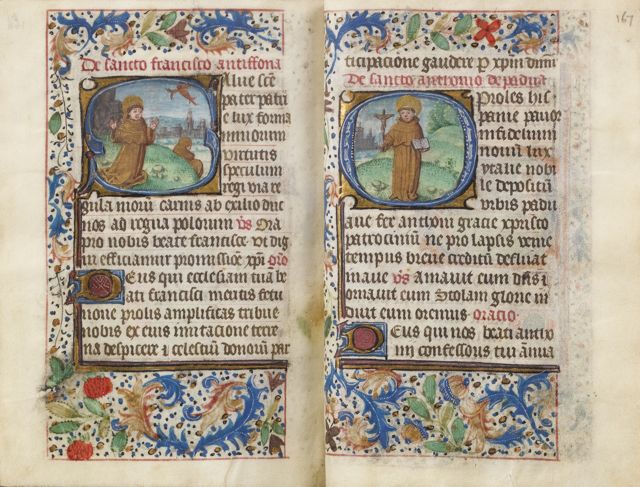 De sancto francisco antiffona
Salue sce
pater patrie
e lux forma
minorum
virtutis
speculum
regi via re
gula morum carnis ab exilio duc
nos ad regna polorum vs Ora
pro nobis beate francisce vt dig
in efficiamur promissioe xpi oro
Deus qui ecclesiam tuā be
ati francisci meritis fetu
nione prolis amplificas tribue
nobis ex eius imitacione terre
na despicere ⁊ celestium donorum par
167
ticipacione gaudere p xpm dnm
De sancto anthonio de padua
O Proles his
panie pauor
infidelium
noua lux
ytalie nobi
le depositū
vrbis padu
que fer anthoni gracie xpristo
patrocinium ne pro lapsis venie
tempus breue creditū defluat
inaue vs Amauit eum dns ⁊
ornauit eum Stolam glorie in
duit eum orcimus oracio
Deus qui nos beati antho
nii confessoris tui annua